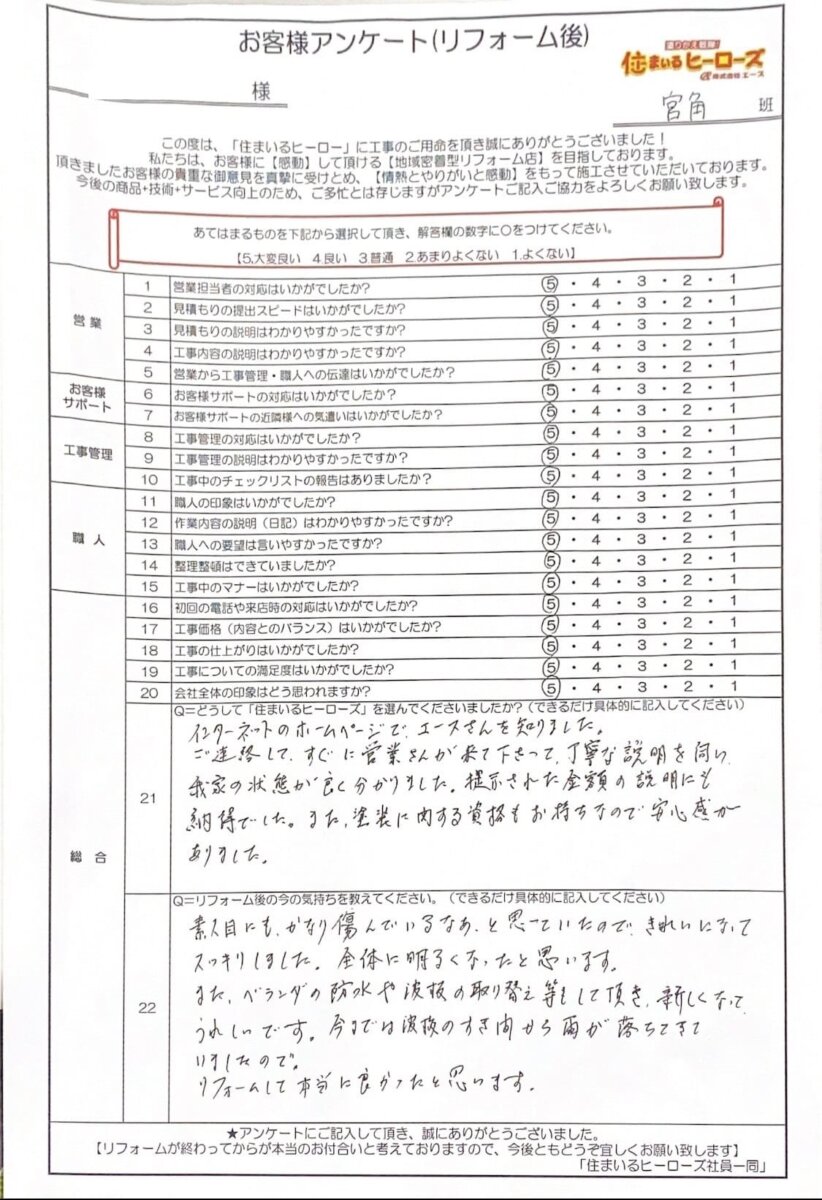 お客様アンケート(リフォーム後)
塗りかえ戦隊!
住まいるヒーローズ
株式会社エース
様
宮角 班
この度は、「住まいるヒーロー」に工事のご用命を頂き誠にありがとうございました!
私たちは、お客様に【感動】して頂ける【地域密着型リフォーム店】を目指しております。
頂きましたお客様の貴重な御意見を真摯に受けとめ、【情熱とやりがいと感動】をもって施工させていただいております。
今後の商品+技術+サービス向上のため、ご多忙とは存じますがアンケートご記入ご協力をよろしくお願い致します。
あてはまるものを下記から選択して頂き、解答欄の数字に○をつけてください。
【5.大変良い 4.良い 3普通 2.あまりよくない 1.よくない】
営業
1 営業担当者の対応はいかがでしたか? 5・4・3・2・1
2 見積もりの提出スピードはいかがでしたか? 5・4・3・2・1
3 見積もりの説明はわかりやすかったですか? 5・4・3・2・1
4 工事内容の説明はわかりやすかったですか? 5・4・3・2・1
5 営業から工事管理・職人への伝達はいかがでしたか? 5・4・3・2・1
お客様
サポート
6 お客様サポートの対応はいかがでしたか? 5・4・3・2・1
7 お客様サポートの近隣様への気遣いはいかがでしたか? 5・4・3・2・1
工事管理
8 工事管理の対応はいかがでしたか? 5・4・3・2・1
9 工事管理の説明はわかりやすかったですか? 5・4・3・2・1
10 工事中のチェックリストの報告はありましたか? 5・4・3・2・1
職人
11 職人の印象はいかがでしたか? 5・4・3・2・1
12 作業内容の説明(日記)はわかりやすかったですか? 5・4・3・2・1
13 職人への要望は言いやすかったですか? 5・4・3・2・1
14 整理整頓はできていましたか? 5・4・3・2・1
15 工事中のマナーはいかがでしたか? 5・4・3・2・1
総合
16 初回の電話や来店時の対応はいかがでしたか? 5・4・3・2・1
17 工事価格(内容とのバランス)はいかがでしたか? 5・4・3・2・1
18 工事の仕上がりはいかがでしたか? 5・4・3・2・1
19 工事についての満足度はいかがでしたか? 5・4・3・2・1
20 会社全体の印象はどう思われますか? 5・4・3・2・1
21 Q=どうして「住まいるヒーローズ」を選んでくださいましたか?(できるだけ具体的に記入してください)
インターネットのホームページで、エースさんを知りました。
ご連絡して、すぐに営業さんが来て下さって、丁寧な説明を伺い、
我家の状態が良く分かりました。提示された金額の説明にも
納得でした。また、塗装に関する資格もお持ちなので安心感が
ありました。
22 Q=リフォーム後の今の気持ちを教えてください。(できるだけ具体的に記入してください)
素人目にも、かなり傷んでいるなあ、と思っていたので、きれいになって
スッキリしました。全体に明るくなったと思います。
また、ベランダの防水や波板の取り替え等もして頂き、新しくなって
うれしいです。今までは波板のすき間から雨が落ちてきて
いましたので。
リフォームして本当に良かったと思います。
★アンケートにご記入して頂き、誠にありがとうございました。
【リフォームが終わってからが本当のお付合いと考えておりますので、今後ともどうぞ宜しくお願い致します】
「住まいるヒーローズ社員一同」